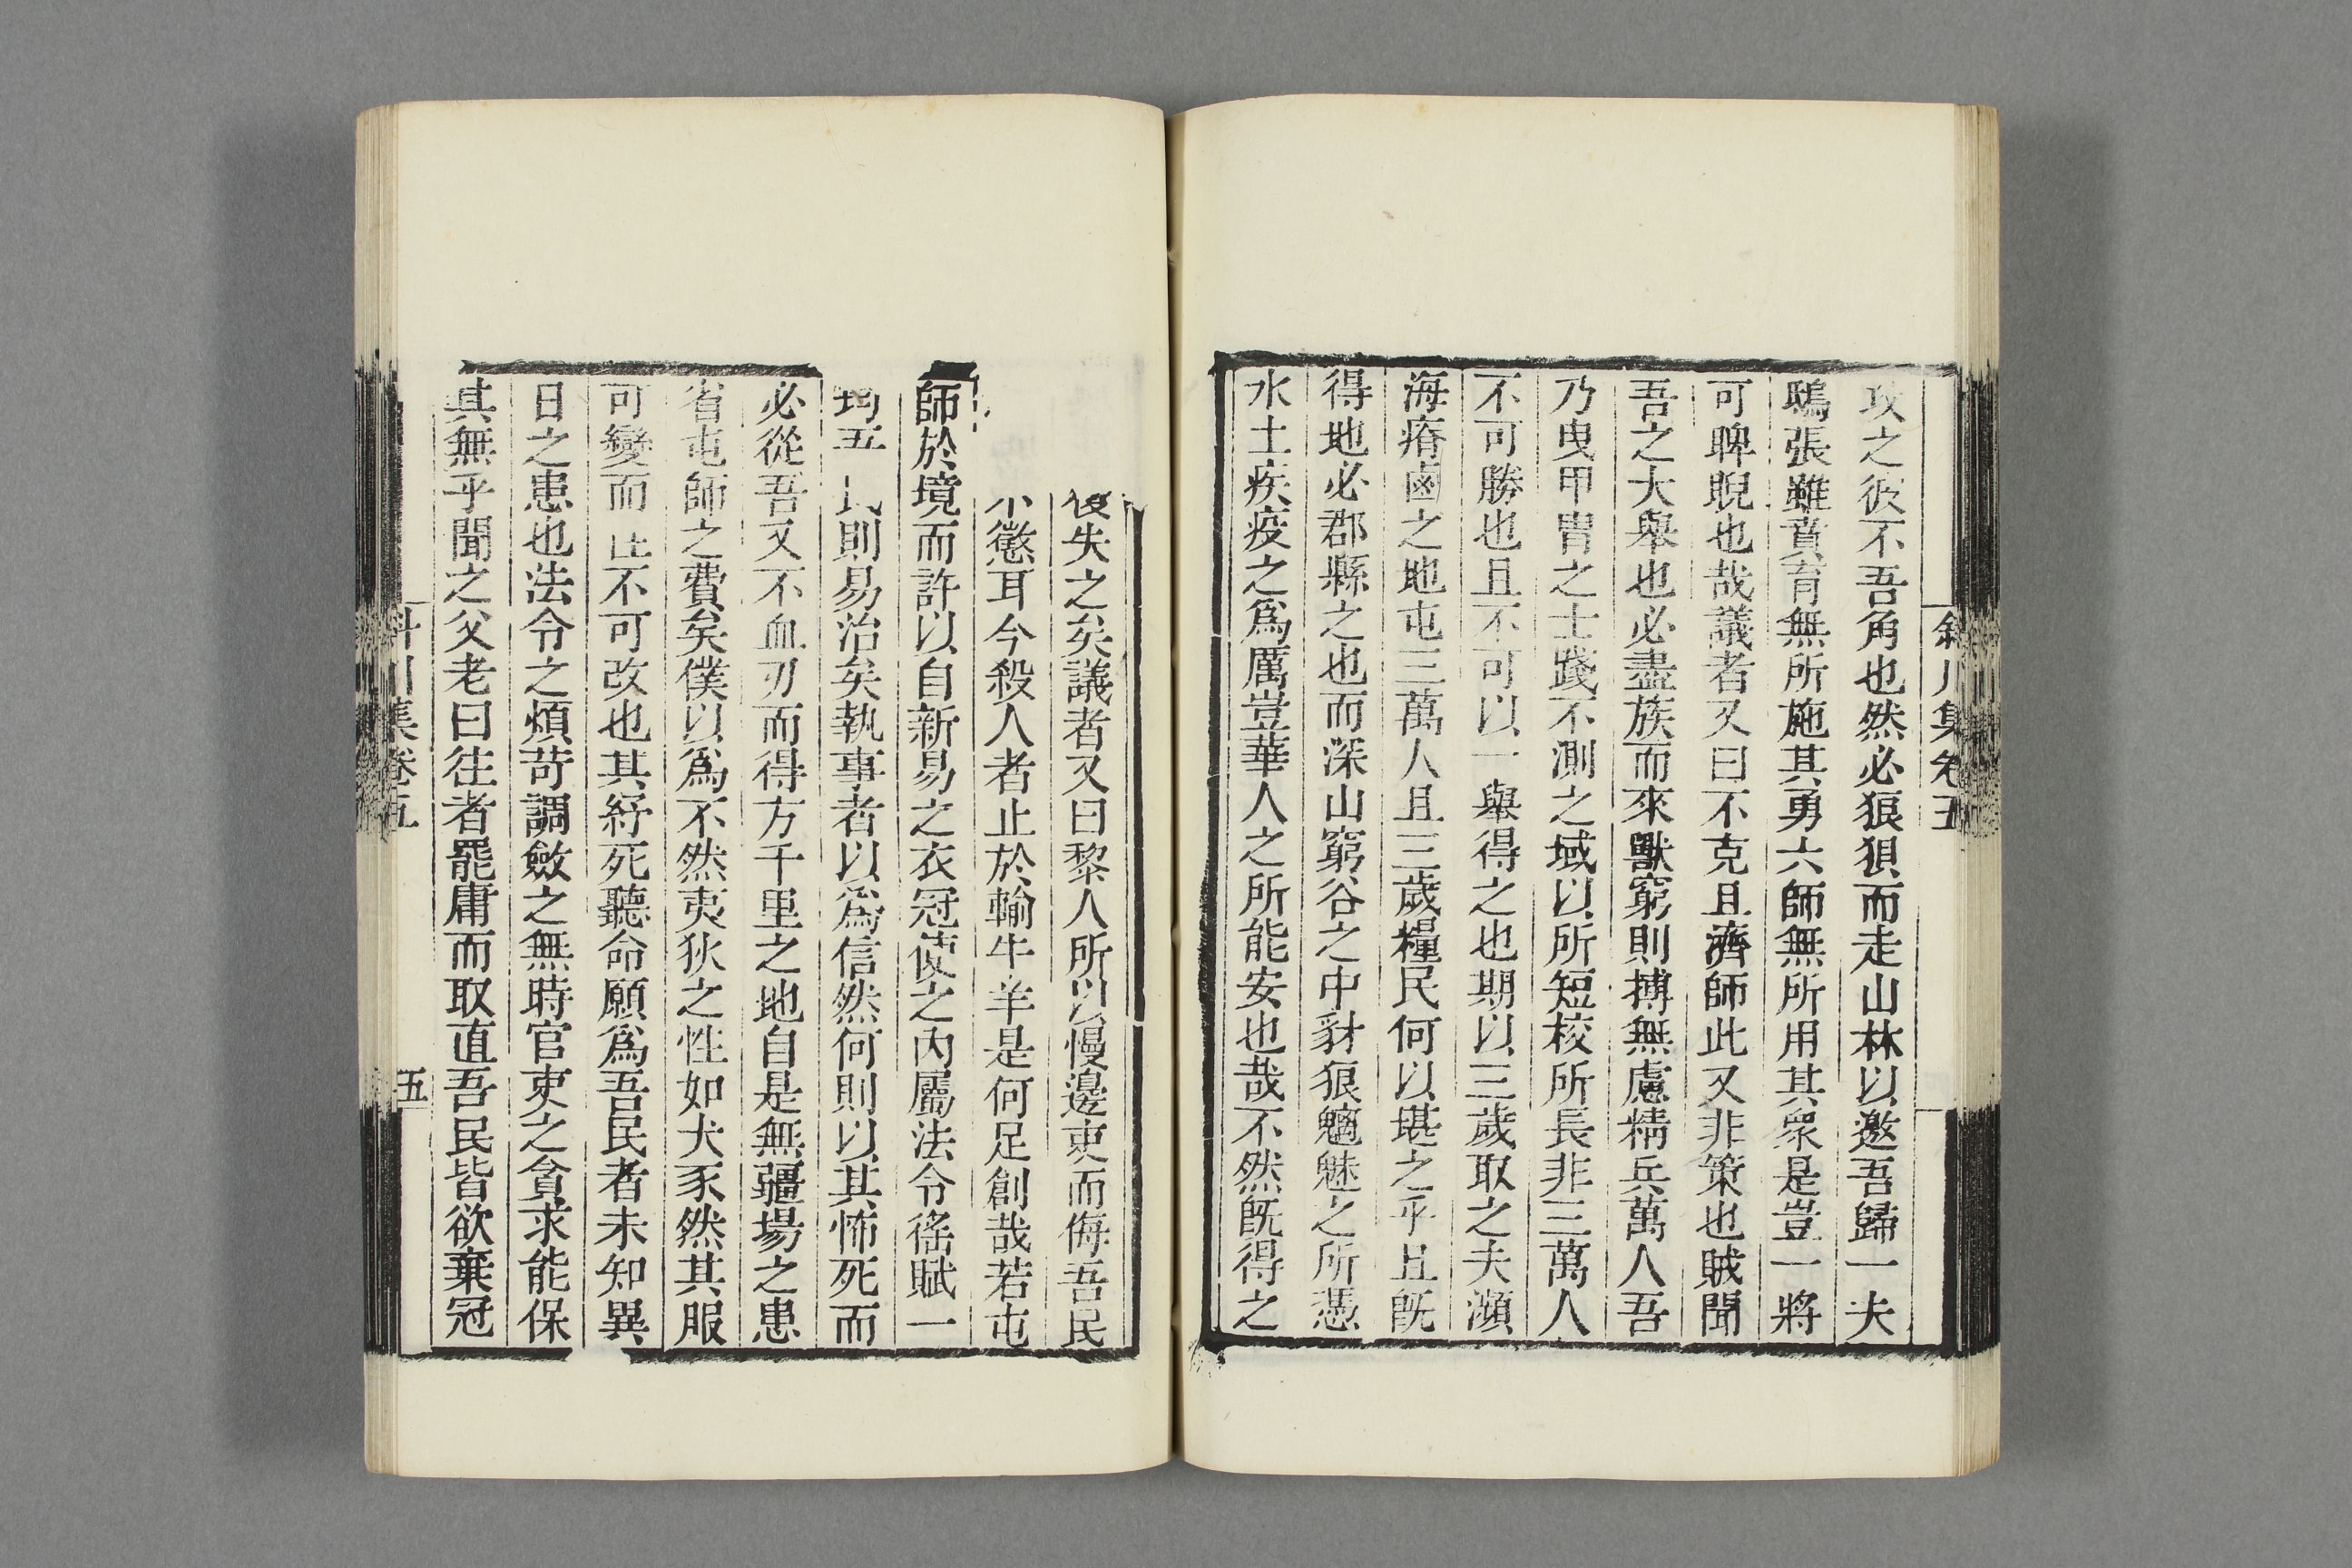 攻之彼不吾角也然必狼狽而走山林以邀吾歸一夫
鴟張雖賁育無所施其勇六師無所用其衆是豈一將
可睥睨也哉議者又曰不克且濟師此又非策也賊聞
吾之大舉也必盡族而來獸窮則搏無慮精兵萬人吾
乃曳甲冑之士踐不測之域以所短校所長非三萬人
不可勝也且不可以一舉得之也期以三歲取之夫瀕
海瘠鹵之地屯三萬人且三歲糧民何以堪之乎且旣
得地必郡縣之也而深山窮谷之中豺狼魑魅之所憑
水土疾疫之爲厲豈華人之所能安也哉不然旣得之
復失之矣議者又曰黎人所以慢邊吏而侮吾民
小懲耳今殺人者止於輸牛羊是何足創哉若屯
師於境而許以自新易之衣冠使之內屬法令徭賦一
均吾民則易治矣執事者以爲信然何則以其怖死而
必從吾又不血刃而得方千里之地自是無疆場之患
省屯師之費矣僕以爲不然夷狄之性如犬豕然其服
可變而性不可改也其紓死聽命願爲吾民者未知異
日之患也法令之煩苛調斂之無時官吏之貪求能保
其無乎聞之父老曰往者罷庸而取直吾民皆欲棄冠
斜川集卷五
五